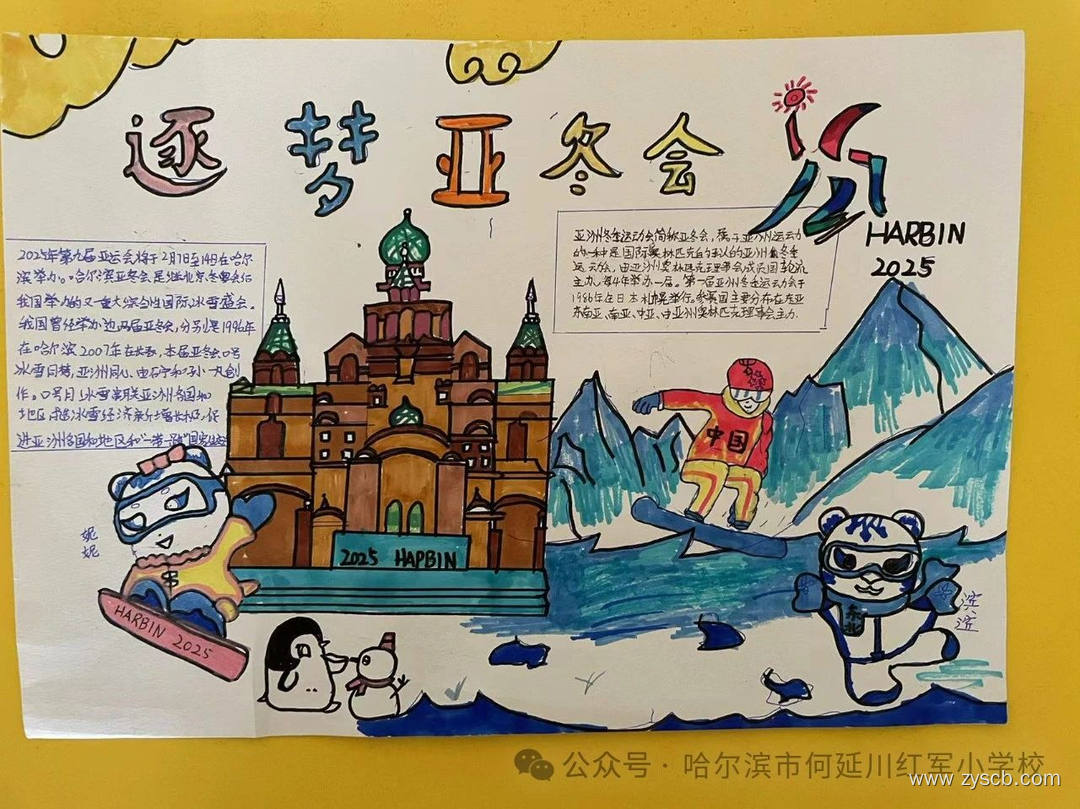 逐梦亚冬会
HARBIN
2025
2025年第九届亚运会将于2月7日至14日在哈尔
滨举办。哈尔滨亚冬会是继北京冬奥会后
我国举办的又一重大综合性国际冰雪盛会。
我国曾经举办过两届亚冬会,分别是1996年
在哈尔滨2007年在长春,本届亚冬会口号
冰雪同梦,亚洲同心,由石宁和孙一丸创
作。口号月冰雪串联亚洲各国和
地区 冰雪经济 增长极,促
进亚洲各国和地区和“一带一路”国家
亚洲冬季运动会简称亚冬会,属于亚洲运动
的一种是国际奥林匹克
运动会,由亚洲奥林匹克理事会成员国轮流
主办,每4年举办一届。第一届亚洲冬季运动会于
1986年在日本札幌举行。参赛国主要分布在东亚
东南亚、南亚、中亚、由亚洲奥林匹克理事会主办.
中国
2025 HAPBIN
妮妮
HARBIN 2025
滨滨
公众号·哈尔滨市何延川红军小学校
www.zyscb.com